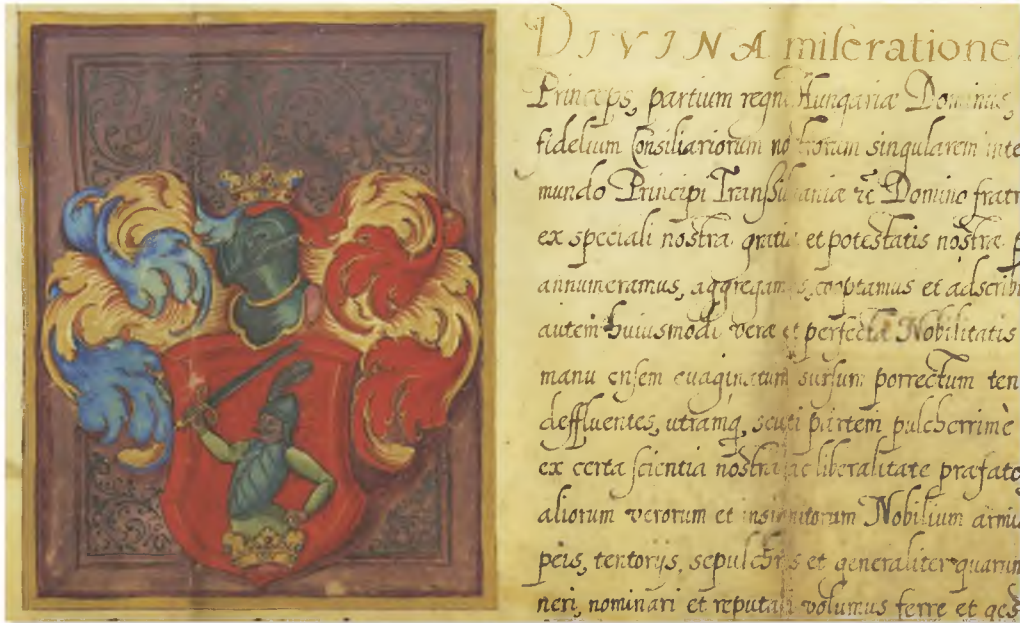 DIVINA miseratione
Princeps, partium regni Hungariæ Dominus,
fidelium Consiliariorum nostrorum singularem inte
mundo Principi Transiluaniæ et Domino fratr
ex speciali nostra gratia et potestatis nostræ p
annumeramus, aggregamus, cooptamus et adscribi
autem huiusmodi veræ et perfectæ Nobilitatis
manu ensem euaginatum sursum porrectum ten
deffluentes, utramq, scuti partem pulcherrimè
ex certa scientia nostra ac liberalitate præfato
aliorum verorum et insignitorum Nobilium armis
peis, tentorijs, sepulchris et generaliter quarum
neri, nominari et reputari volumus ferre et ges